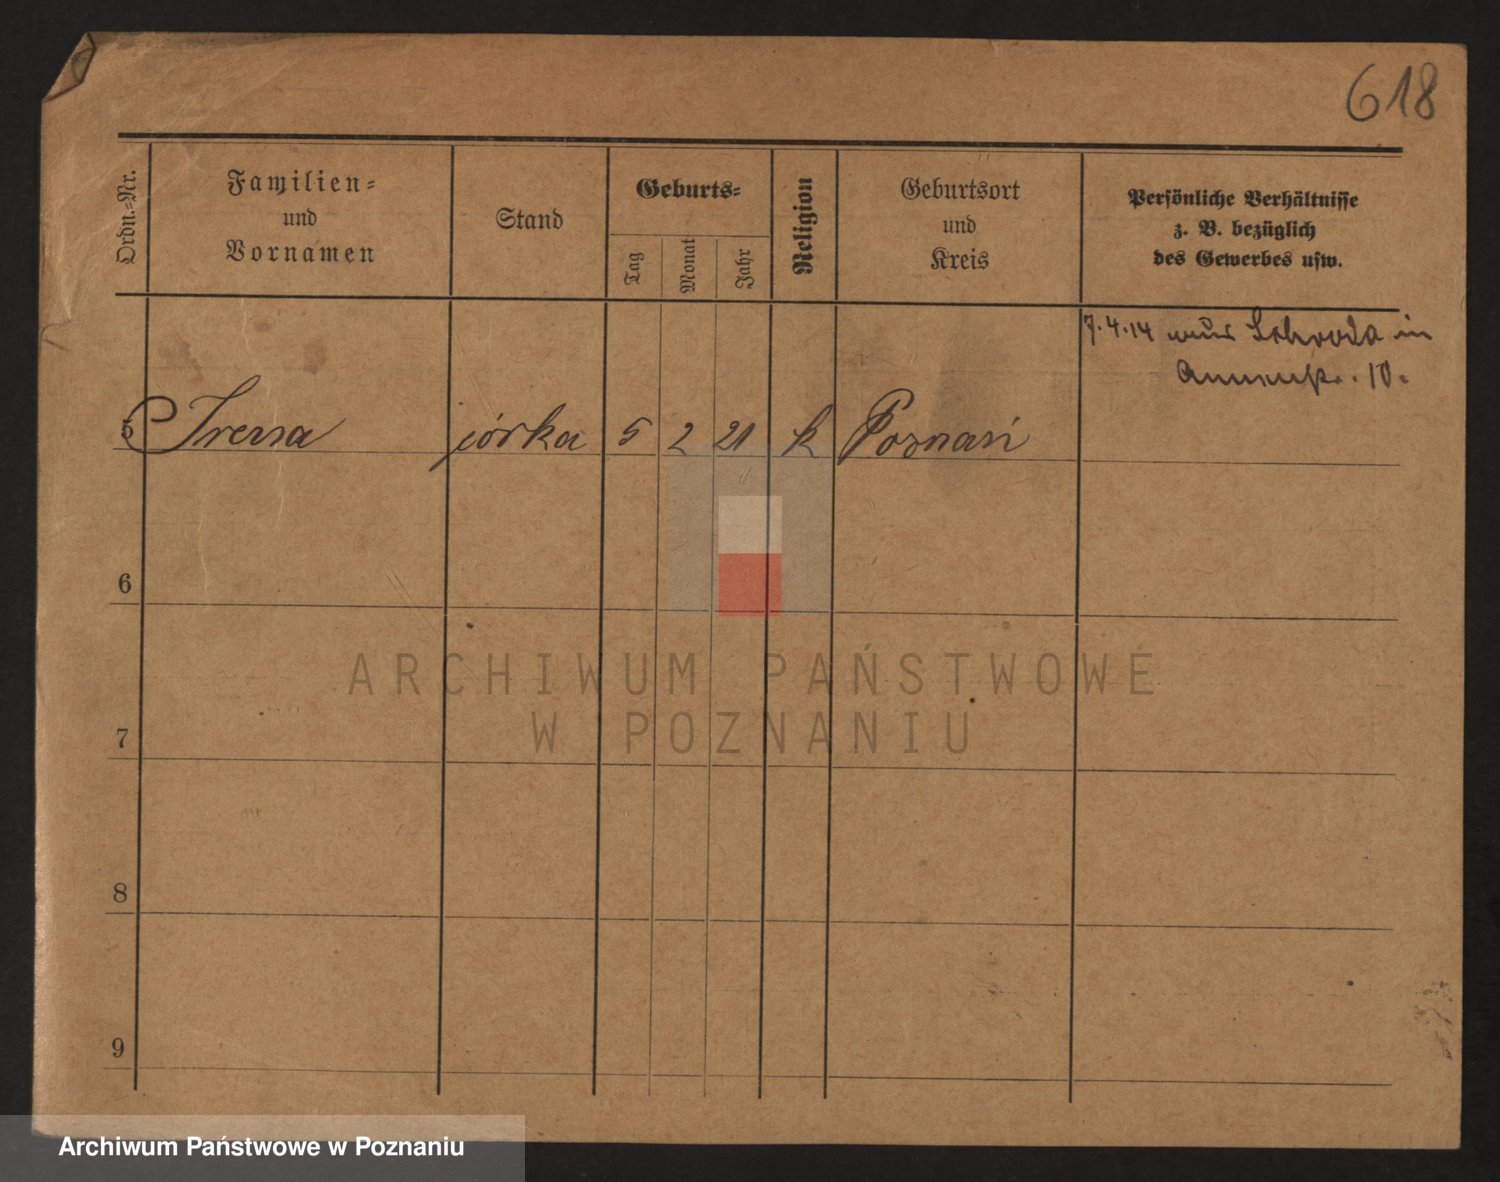 618
Ordn.-Nr.
Familien-
und
Vornamen
Stand
Geburts-
Tag
Monat
Jahr
Religion
Geburtsort
und
Kreis
Persönliche Verhältnisse
z. B. bezüglich
des Gewerbes usw.
7.4.14 Schroda in
10.
5 Irena córka 5 2 21 k Poznań
6
7
8
9
ARCHIWUM PAŃSTWOWE
W POZNANIU
Archiwum Państwowe w Poznaniu